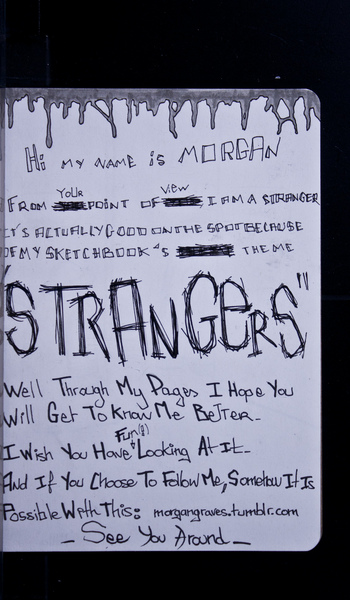 Hi MY NAME iS MORGAN
FROM YOUR POINT OF VIEW I AM A STRANGER
IT'S ACTUALLY GOOD ON THE SPOT BECAUSE
OF MY SKETCHBOOK'S THEME
"STRANGERS"
Well Through My Pages I Hope You
Will Get To Know Me Better_
I Wish You Have Fun(!) Looking At It_
And If You Choose To Follow Me, Somehow It Is
Possible With This: morgangraves.tumblr.com
_ See You Around _